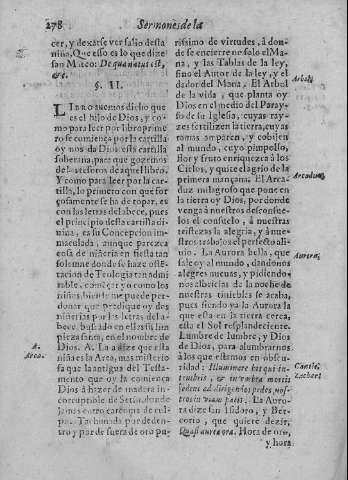 278 Sermones de la
cer, y dexarse ver salio desta
niña, Que esso es lo que dize
san Mateo: De qua natus est,
&c.
§. II.
LIbro auemos dicho que
es el hijo de Dios, y co-
mo para leer por libro prime
ro se comiença por la cartilla
oy nos da Dios esta cartilla
soberana, para que gozemos
de los tesoros de aquel libro.
Y como para leer por la car-
tilla, lo primero con que for
çosamente se ha de topar, es
con las letras del abece, pues
el principio desta cartilla di-
uina, es su Concepcion im-
maculada, aunque parezca
cosa de niñeria en fiesta tan
solemne donde se haze osté-
tacion de Teologia tan admi
rable, començar yo como los
niños, bien se me puede per-
donar que predique oy des
niñerias por las letras del a-
bece, buscado en ellas sus lim
piezas santa, en el nombre de
Dios. A. La a dize que esta ni
ña es la Arca, mas misterio
sa que la antigua del Testa-
mento que oy la comiença
Dios à hazer de madera in-
corruptible de Setin, donde
jamas entrò carcoma de cul-
pa. Tachonada por de den-
tro y por de fuera de oro pu-
A.
Arca.
rissimo de virtudes, à don-
de se encierre no solo el Ma-
na, y las Tablas de la ley,
sino el Autor de la ley, y el
dador del Mana. El Arbol
de la vida, que planta oy
Dios en el medio del Paray-
so de su Iglesia, cuyas ray-
zes fertilizen la tierra, cuyas
ramas amparen, y cobijen
al mundo, cuyo pimpollo,
flor y fruto enriquezca à los
Cielos, y quite el agrio de la
primera mançana. El Arca-
duz milagroso que pone en
la tierra oy Dios, por donde
venga à nuestros desconsue-
los el consuelo, à nuestras
tristezas la alegria, y à nues-
tros trabajos el perfecto ali-
uio. La Aurora bella, que
sale oy al mundo, dandonos
alegres nueuas, y pidiendo-
nos albricias de la noche de
nuestras tinieblas se acaba,
pues siendo ya la Aurora la
que esta en la tierra cerca,
esta el Sol resplandeciente.
Lumbre de lumbre, y Dios
de Dios, para alumbrarnos
à los que estamos en obscu-
ridad: Illuminare his qui in
tenebris, & in vmbra mortis
sedent ad dirigendos pedes nos-
tros in viam pacis. Es Auro-
ra dize san Isidoro, y Ber-
corio, que quiere dezir,
Quasi aurea ora. Hora de oro,
y hora
Arbol.
Arcaduz.
Aurora.
Cantic.
Zachari.